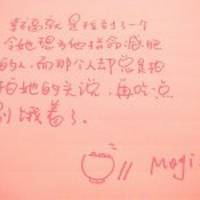 幸福就是找到了一个
令她想为他拼命减肥
的人,而那个人却总是拍
拍她的头说,再吃点
别饿着了。